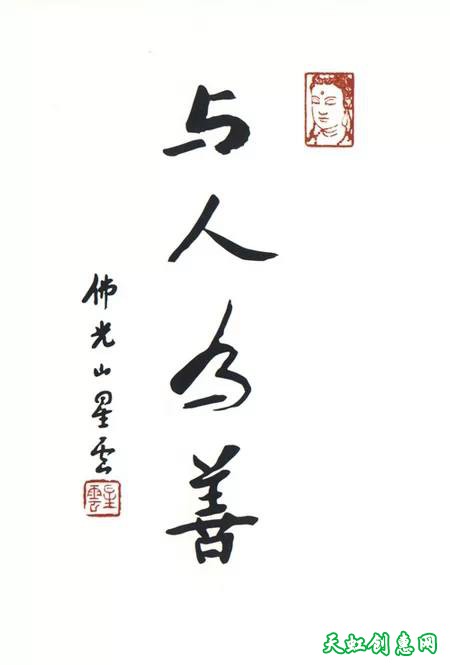 与人为善
佛光山星雲
星雲
天虹创意网